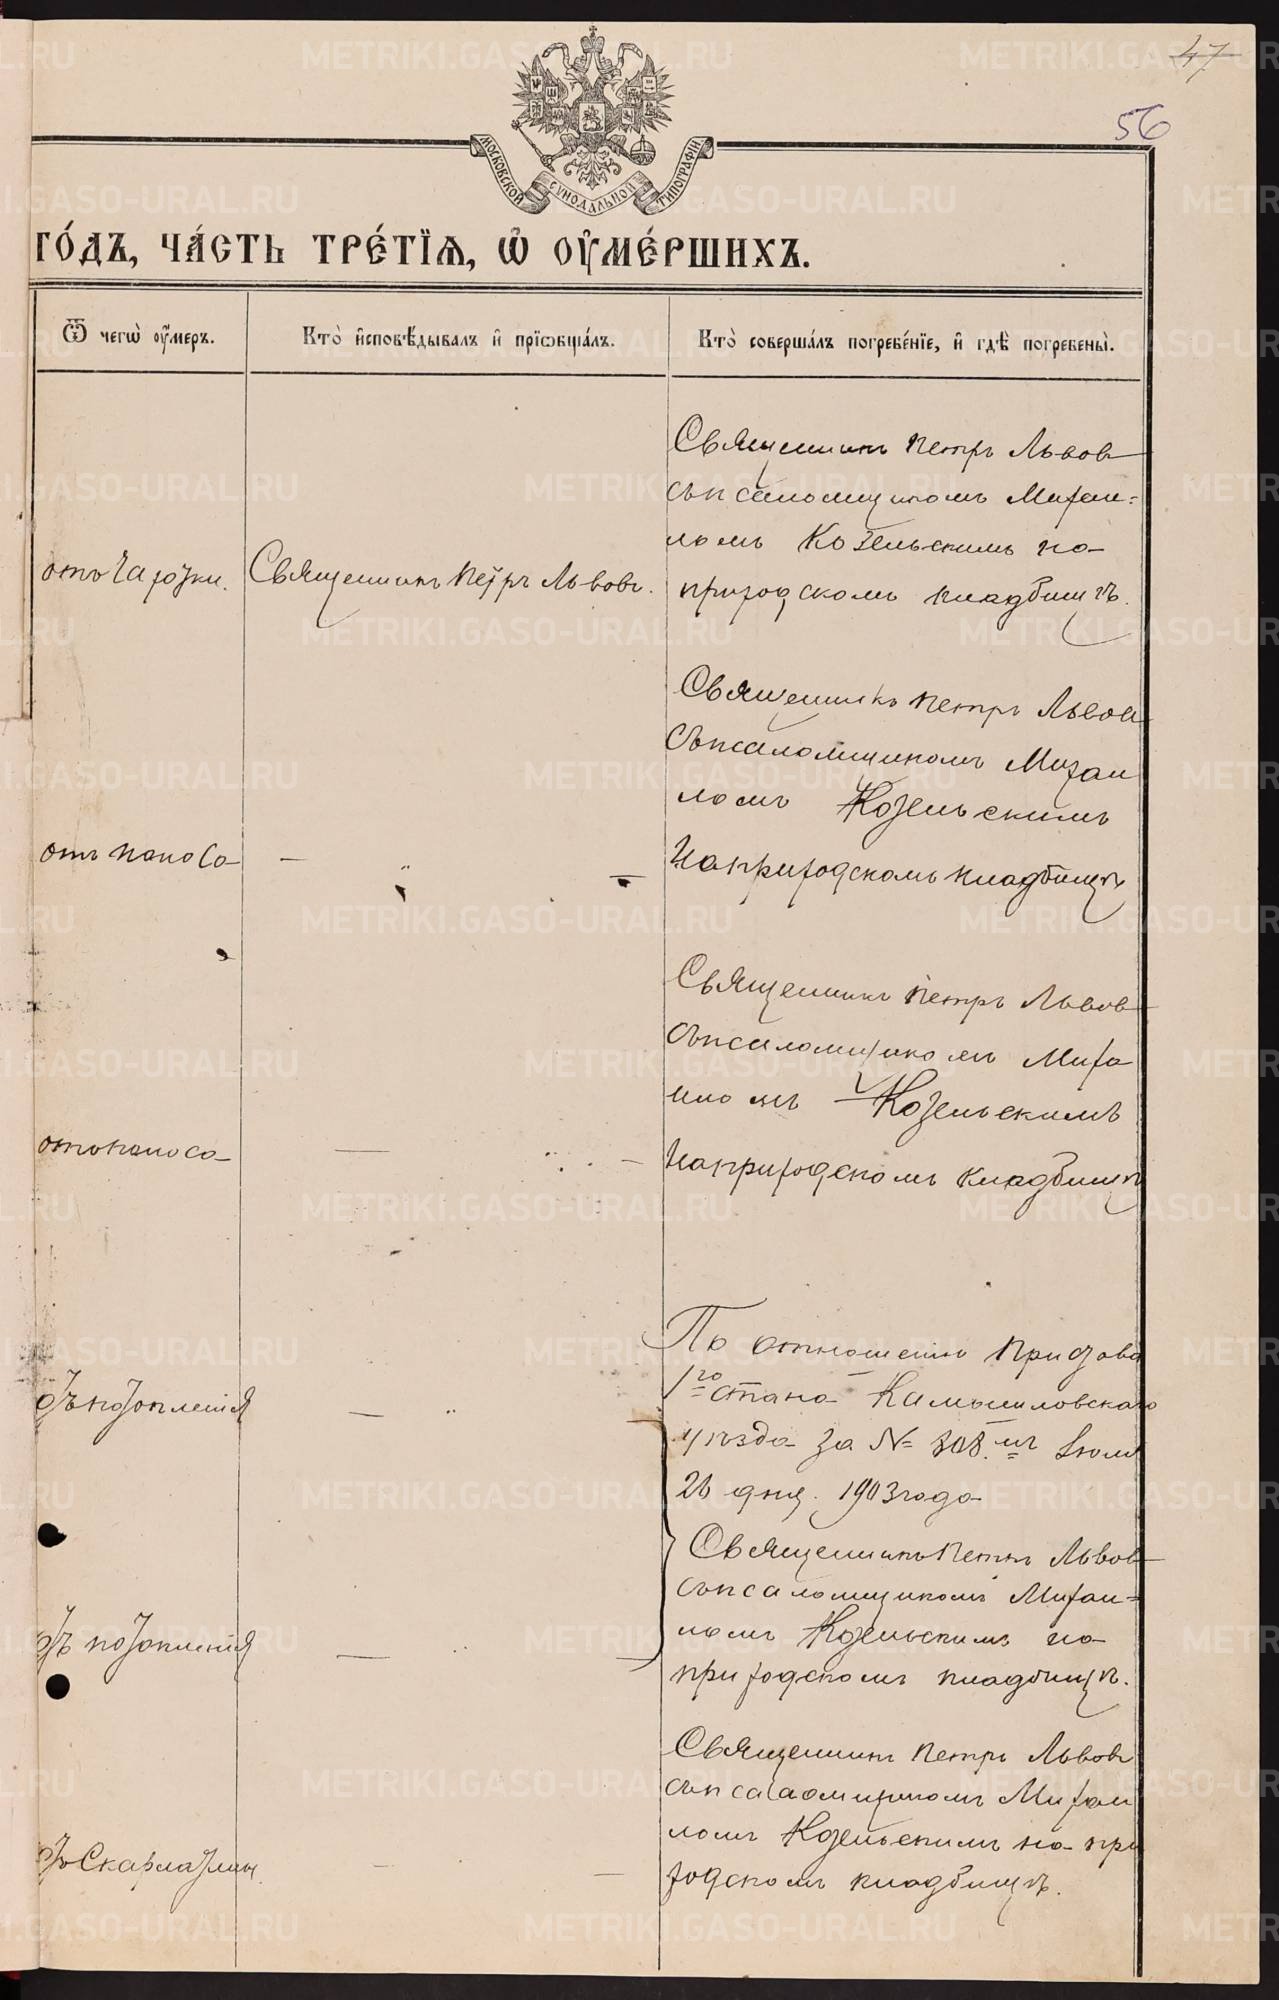 47
56
МОСКОВСКОЙ СУНОДАЛЬНОЙ ТИПОГРАФІИ
ГО́ДЪ, ЧА́СТЬ ТРЕ́ТІѦ, Ѡ҆ ОУ҆МЕ́РШИХЪ.
Ѿ чегѡ̀ оу҆́меръ.
Кто̀ и҆сповѣ́дывалъ и҆ прїѡбща́лъ.
Кто̀ соверша́лъ погребе́нїе, и҆ гдѣ̀ погребены̀.
отъ Чахотки.
Священникъ Петръ Львовъ.
Священникъ Петръ Львовъ
съ псаломщикомъ Михаи=
ломъ Козельскимъ на
приходскомъ кладбищѣ.
отъ поноса
Священникъ Петръ Львовъ
съ псаломщикомъ Михаи
ломъ Козельскимъ
На приходскомъ кладбищѣ
отъ поноса
Священникъ Петръ Львовъ
съ псаломщикомъ Миха
иломъ Козельскимъ
На приходскомъ кладбищѣ
отъ потопленія
По отношенію Пристава
1го стана Камышловскаго
уѣзда за №
26 дня. 1903 года
отъ потопленія
Священникъ Петръ Львовъ
съ псаломщикомъ Михаи=
ломъ Козельскимъ на
приходскомъ кладбищѣ.
отъ Скарлатины.
Священникъ Петръ Львовъ
съ псаломщикомъ Михаи
ломъ Козельскимъ на при
ходскомъ кладбищѣ.
METRIKI.GASO-URAL.RU